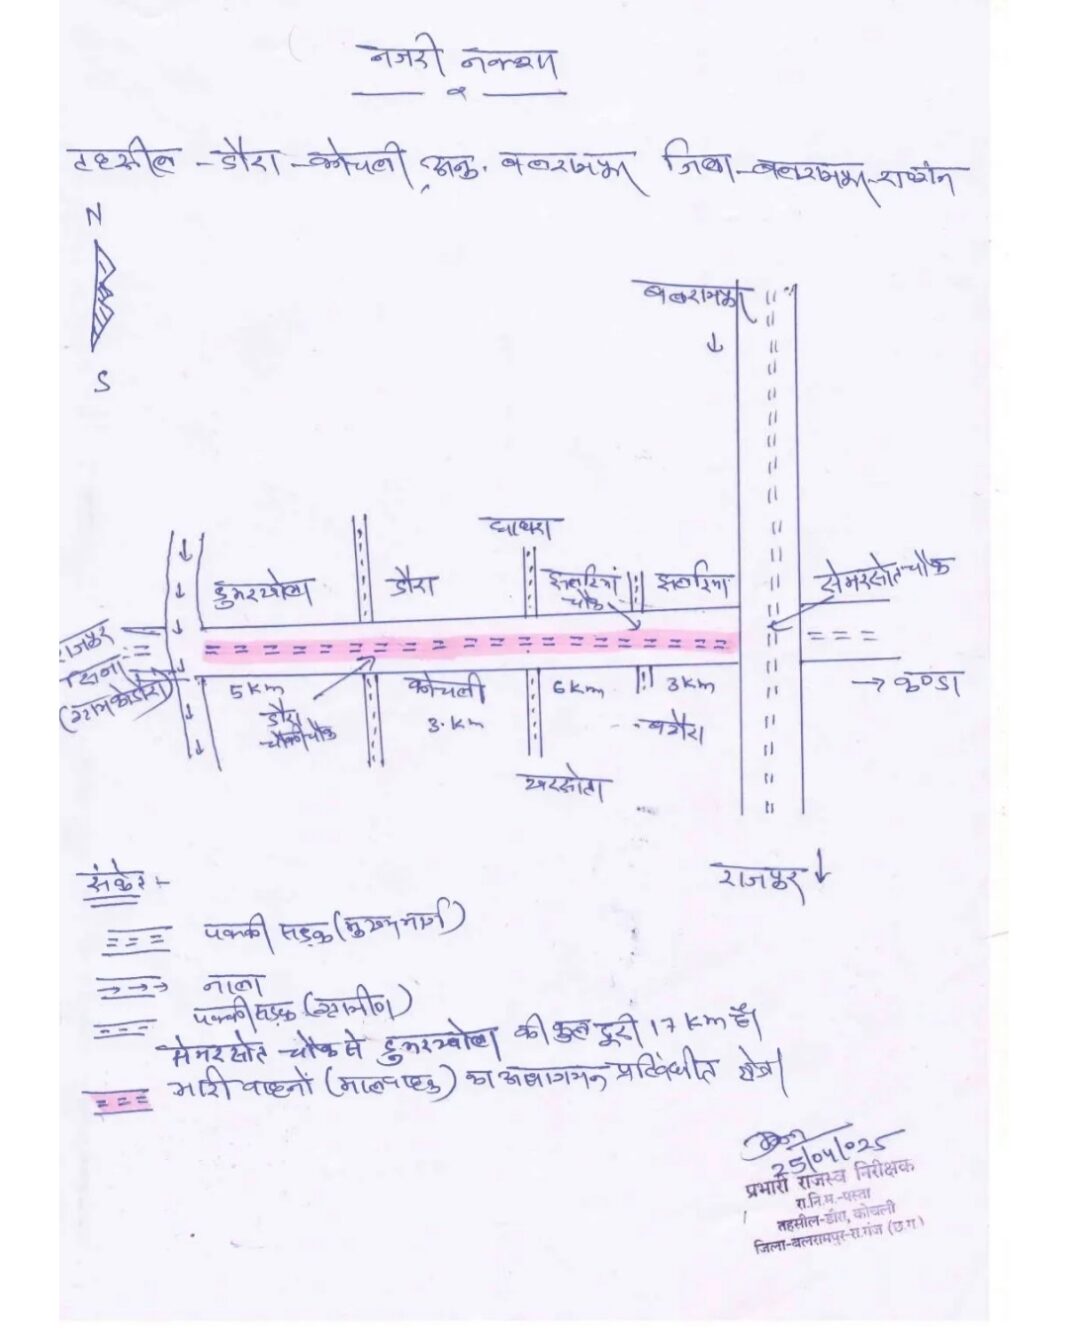 नजरी नक्शा
तहसील - डौरा - कोचली अनु. बलरामपुर जिला - बलरामपुर - रा.गंज
N
S
बलरामपुर
घाघरा
डुमरखोला
डौरा
झलरिया चौक
झलरिया
सेमरसोत चौक
राजपुर
5 km
कोचली
3. km
6 km
3 km
→ कण्डा
डौरा
चौकी चौक
बरौरा
खरसोता
राजपुर ↓
संकेत :-
पक्की सड़क (मुख्यमार्ग)
नाला
पक्की सड़क (ग्रामीण)
सेमरसोत चौक से डुमरखोला की कुल दूरी 17 km है।
भारी वाहनों (मालवाहक) का आवागमन प्रतिबंधीत क्षेत्र।
25/04/025
प्रभारी राजस्व निरीक्षक
रा.नि.म.-पस्ता
तहसील-डौरा, कोचली
जिला-बलरामपुर-रा.गंज (छ.ग.)